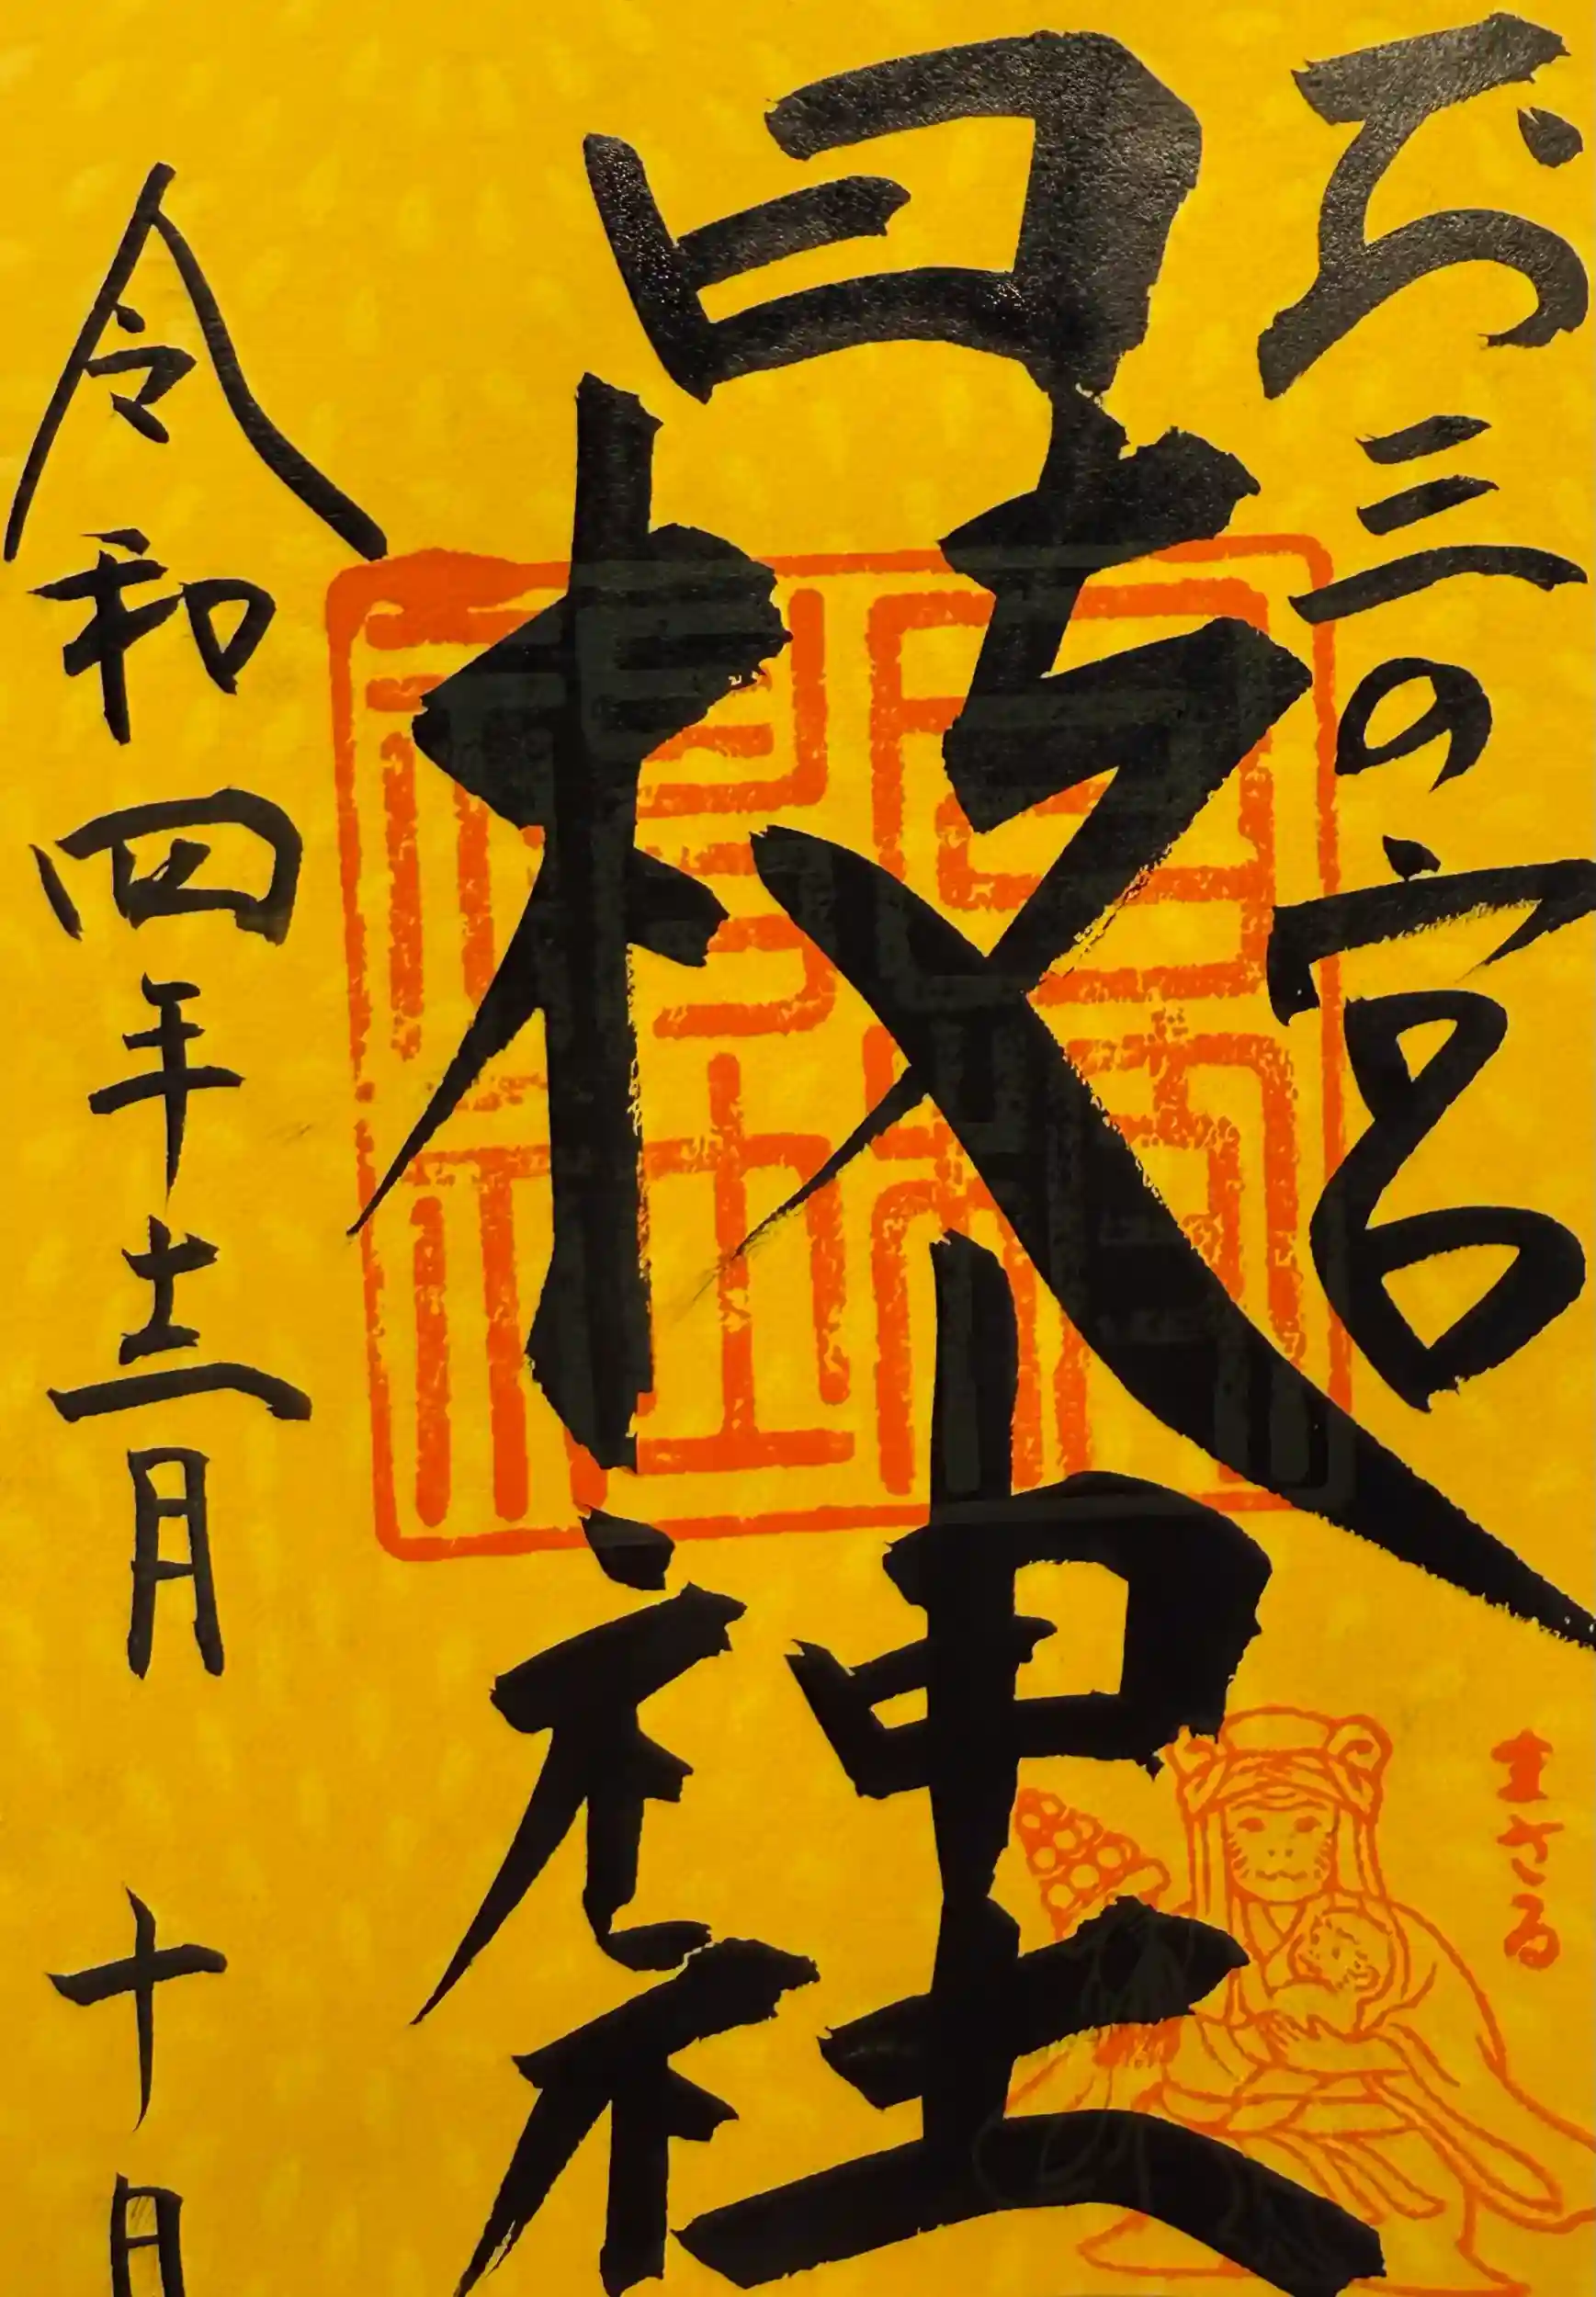 お三の宮
日枝神社
令和四年十二月十日
まさる